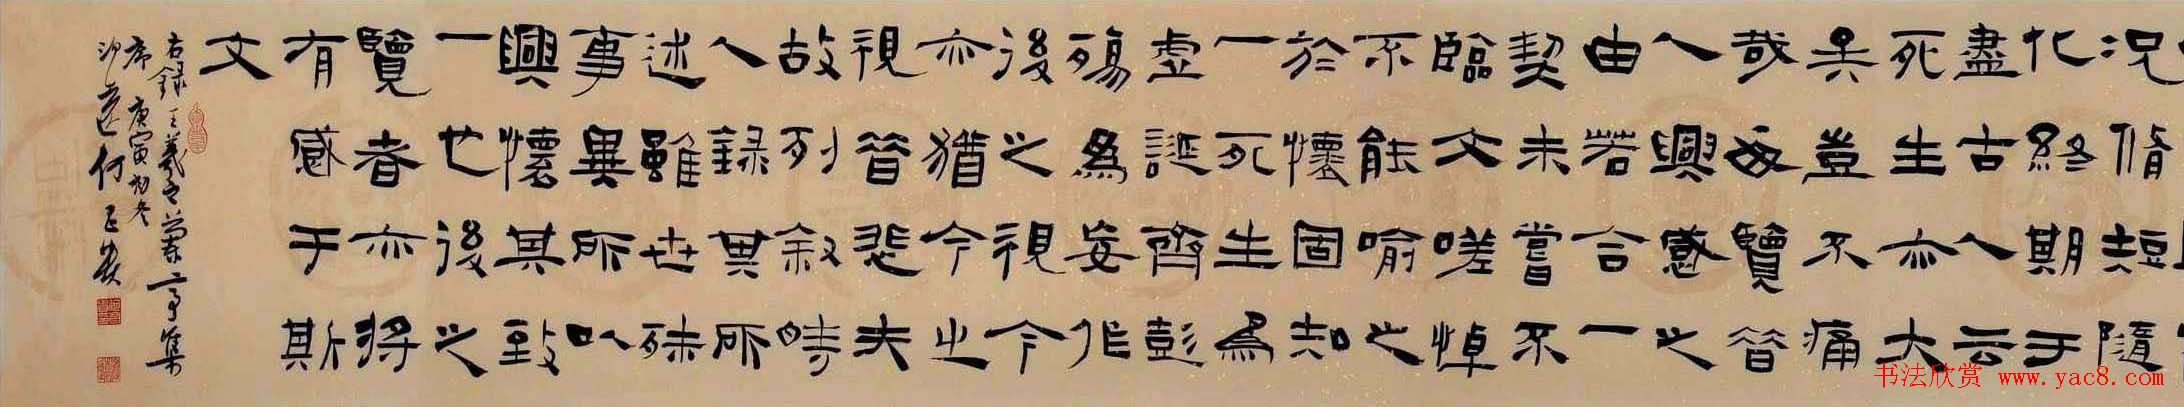 况脩短隨
化終期于
盡古人云
死生亦大
矣豈不痛
哉每覽昔
人興感之
由若合一
契未嘗不
臨文嗟悼
不能喻之
於懷固知
一死生爲
虛誕齊彭
殤爲妄作
後之視今
亦猶今之
視昔悲夫
故列敘時
人錄其所
述雖世殊
事異所以
興懷其致
一也後之
覽者亦將
有感于斯
文
右錄王羲之蘭亭集
序 庚寅初冬
何正
书法欣赏 www.yac8.com